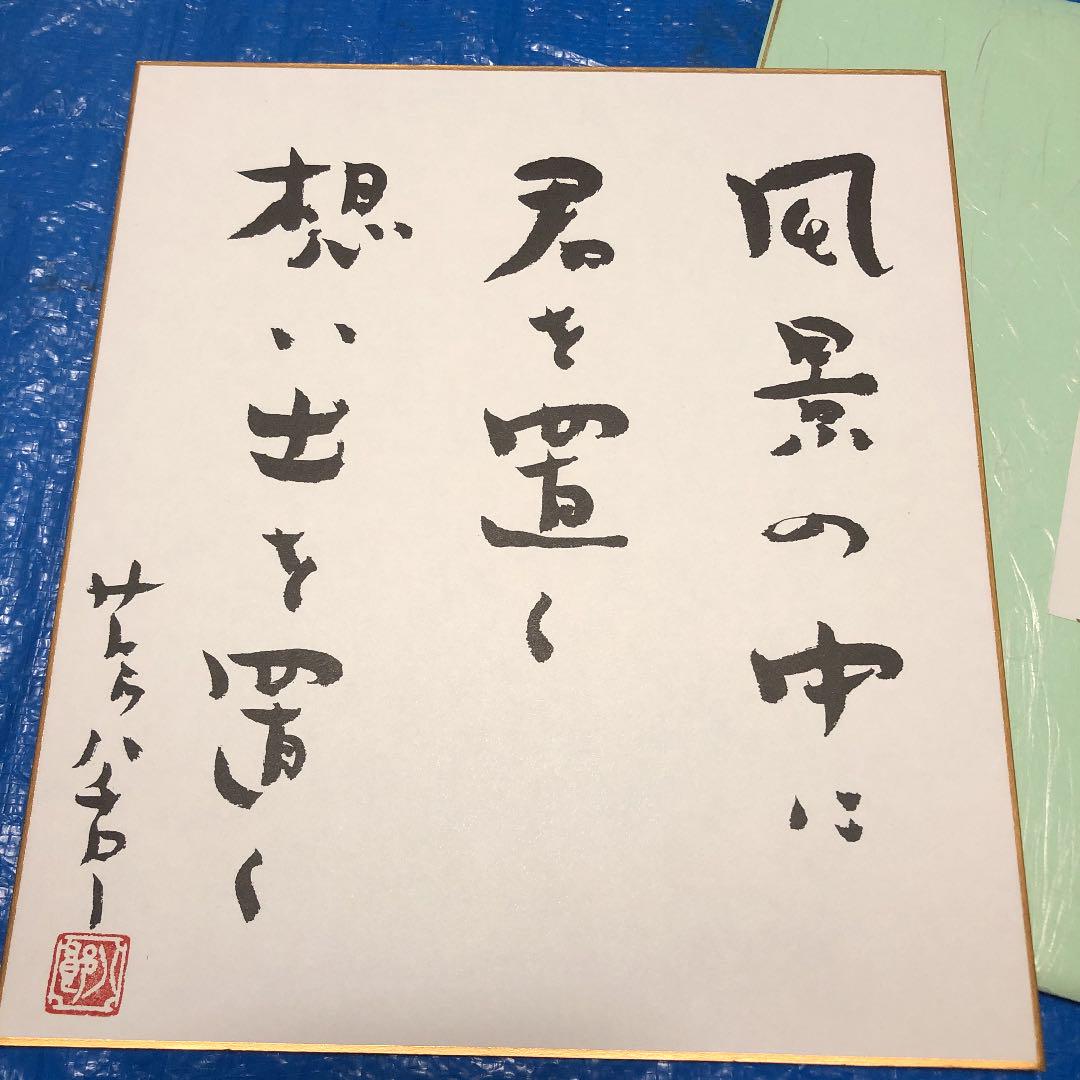 風景の中に
君を置く
想い出を置く
サトウハチロー
八郎